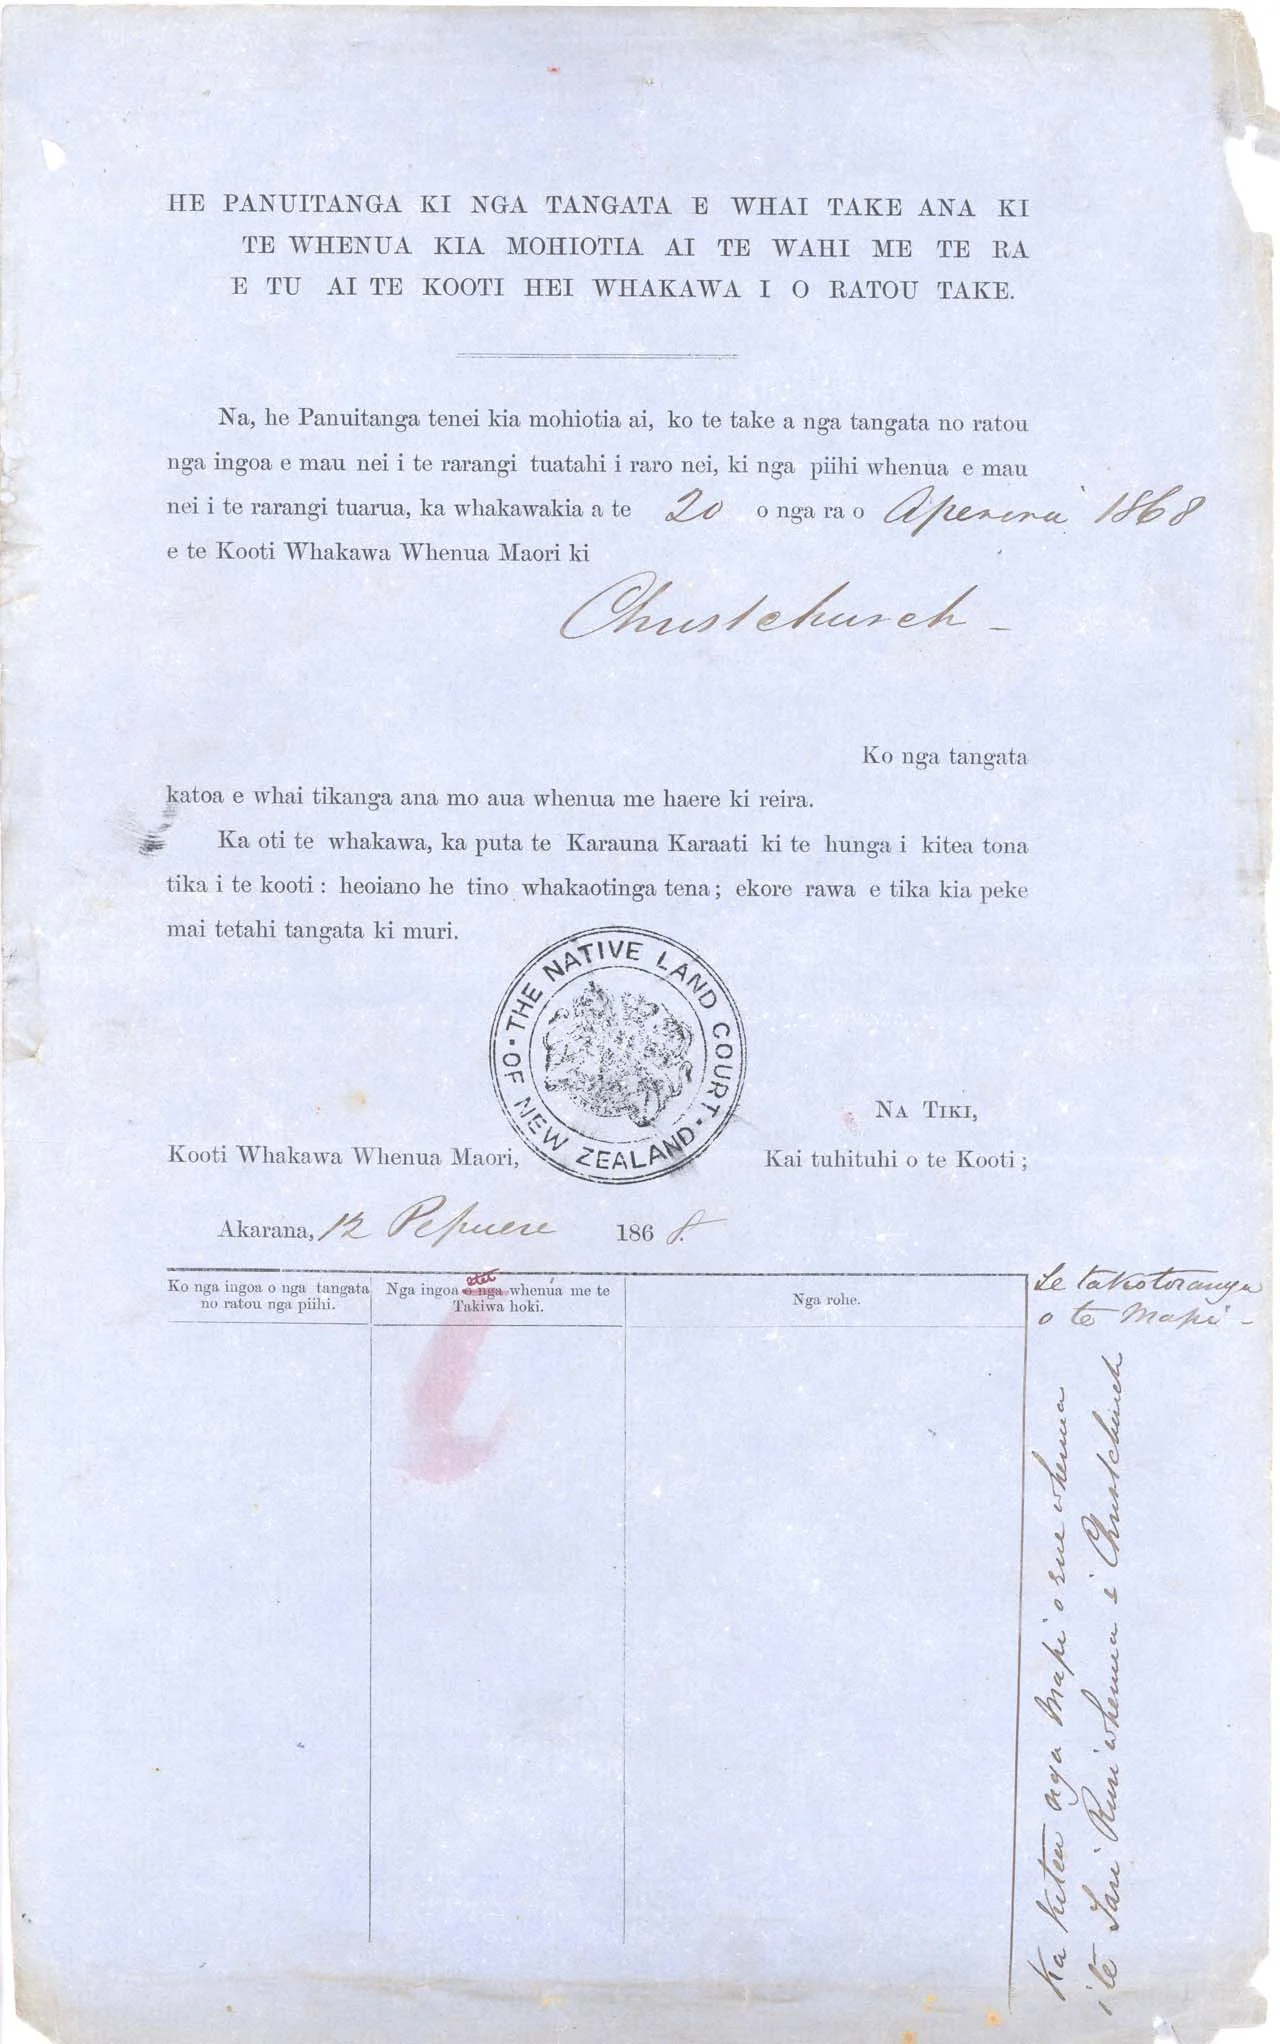 HE PANUITANGA KI NGA TANGATA E WHAI TAKE ANA KI
TE WHENUA KIA MOHIOTIA AI TE WAHI ME TE RA
E TU AI TE KOOTI HEI WHAKAWA I O RATOU TAKE.
Na, he Panuitanga tenei kia mohiotia ai, ko te take a nga tangata no ratou
nga ingoa e mau nei i te rarangi tuatahi i raro nei, ki nga piihi whenua e mau
nei i te rarangi tuarua, ka whakawakia a te 20 o nga ra o Aperira 1868
e te Kooti Whakawa Whenua Maori ki
Christchurch -
Ko nga tangata
katoa e whai tikanga ana mo aua whenua me haere ki reira.
Ka oti te whakawa, ka puta te Karauna Karaati ki te hunga i kitea tona
tika i te kooti : heoiano he tino whakaotinga tena ; ekore rawa e tika kia peke
mai tetahi tangata ki muri.
· THE NATIVE LAND COURT · OF NEW ZEALAND
NA TIKI,
Kooti Whakawa Whenua Maori, Kai tuhituhi o te Kooti ;
Akarana, 12 Pepuere 1868.
Ko nga ingoa o nga tangata
no ratou nga piihi.
Nga ingoa o nga whenua me te
Takiwa hoki.
Nga rohe.
Te takotoranga
o te Mapi -
Ka kitea nga Mapi o ene whenua
i te Tari Ruri whenua i Christchurch